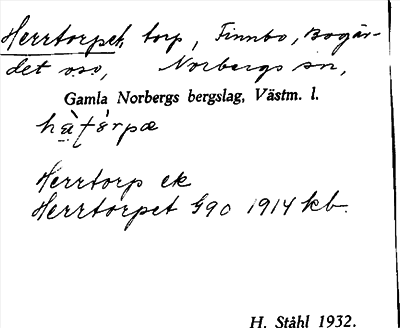 Herrtorpet, torp, Finnbo, Bogär-
det oso, Norbergs sn,
Gamla Norbergs bergslag, Västm. l.
Herrtorp ek
Herrtorpet G90 1914 kb.
H. Ståhl 1932.